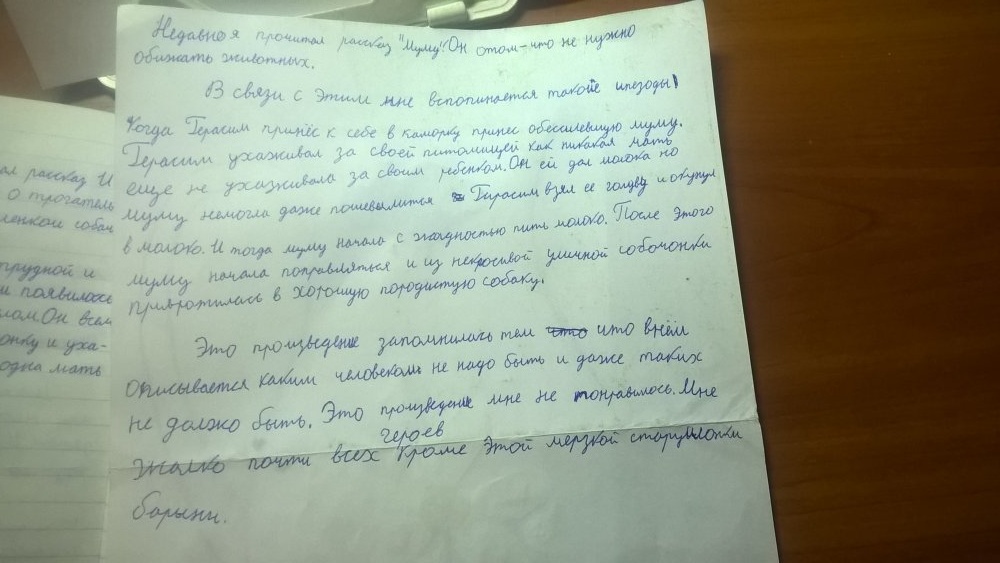 Недавно я прочитал рассказ "Муму". Он отом-что не нужно
обижать животных.
В связи с этим мне вспопинается такойе ипезоды!
Когда Герасим принёс к себе в каморку принес обессилевшую муму.
Герасим ухаживал за своей питомицей как никакая мать
еще не ухаживала за своим ребёнком. Он ей дал молока но
муму немогла даже пошевылится Герасим взял ее голову и окунул
в молоко. И тогда муму начала с жадностью пить молоко. После этого
муму начала поправляться и из некросивой уличной собочонки
привротилась в хорошую породистую собаку.
Это произведение запомнилось тем что что внём
описывается каким человеком не надо быть и даже таких
не должо быть. Это произведение мне не понравилось. Мне
героев
жалко почти всех кроме этой мерзкой старушонки
барыни.
ал рассказ И
о трогатель
ленкой собач
трудной и
и появилось
лом Он всем
онку и уха-
одна мать